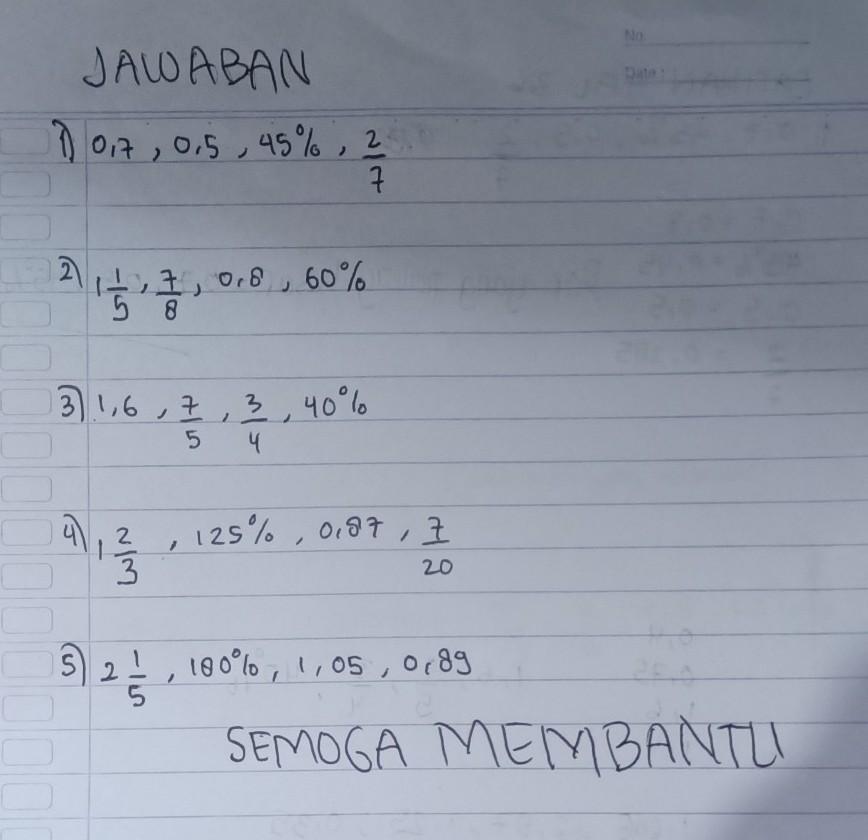 No.
Date:
JAWABAN
1) 0,7 , 0,5 , 45% , 2/7
2) 1 1/5 , 7/8 , 0,8 , 60%
3) 1,6 , 7/5 , 3/4 , 40%
4) 1 2/3 , 125% , 0,87 , 7/20
5) 2 1/5 , 180% , 1,05 , 0,89
SEMOGA MEMBANTU